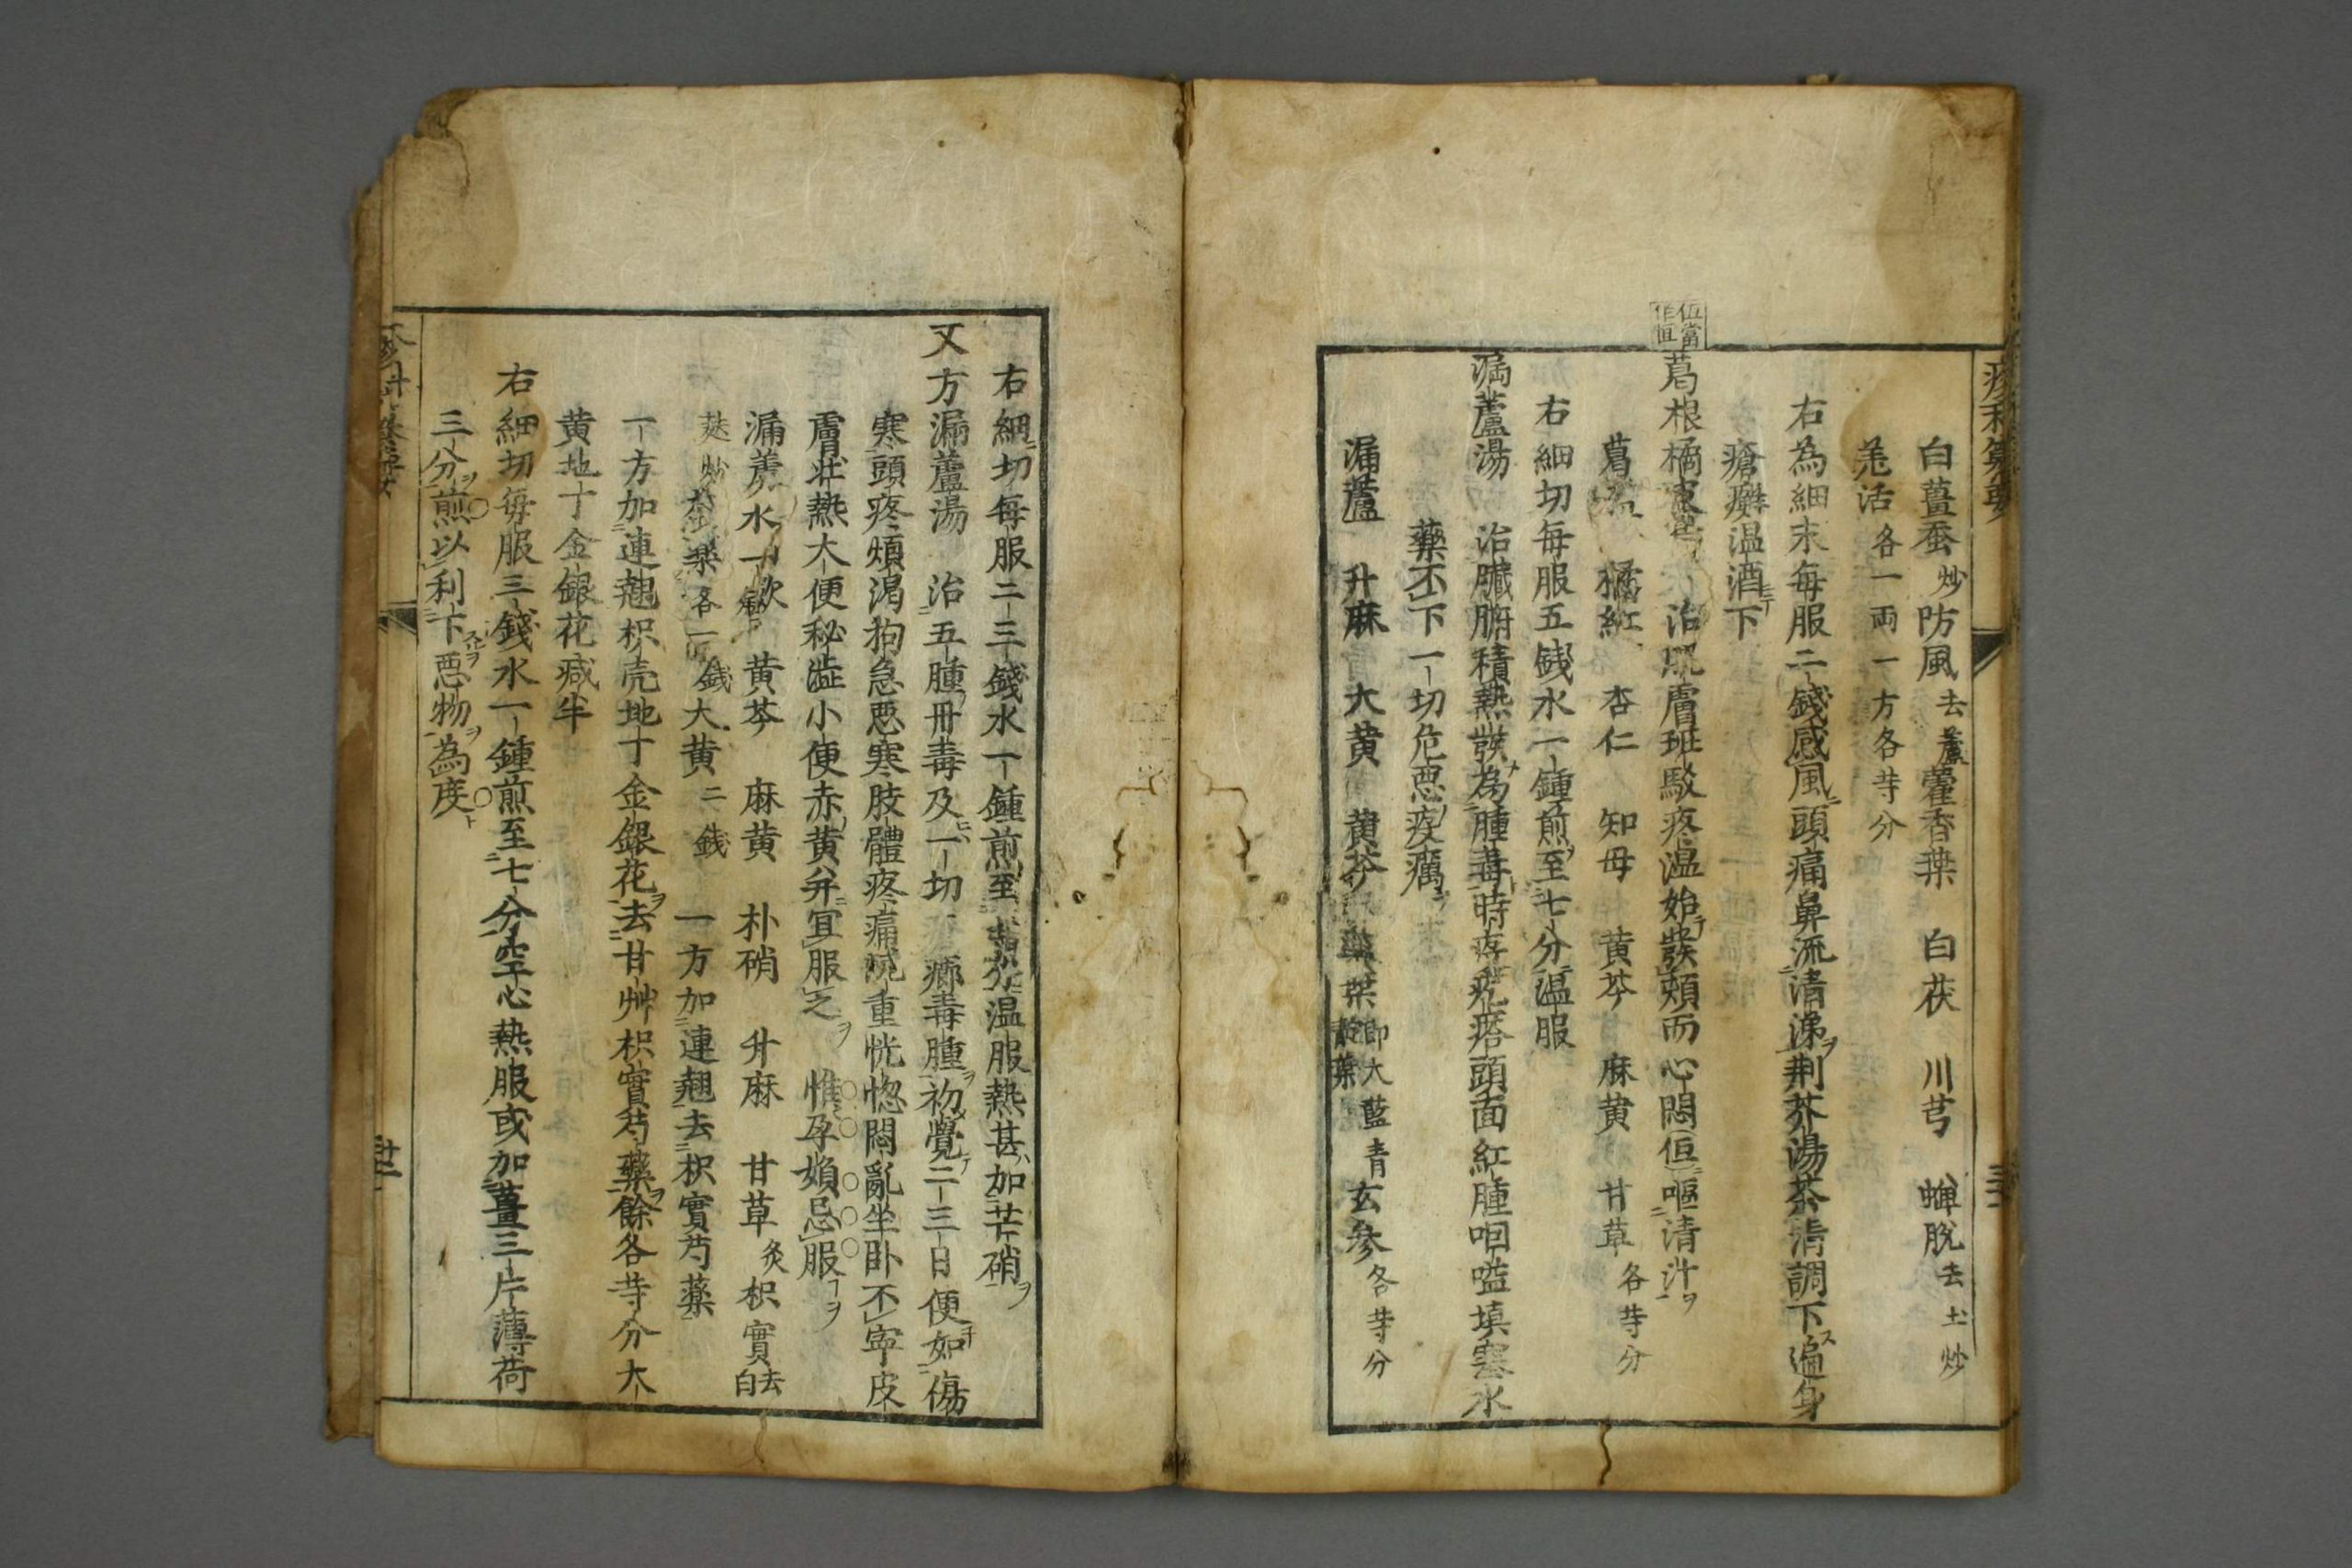 白薑蚕炒防風去蘆藿香葉 白茯 川芎 蝉脱去土炒
羗活各一両一方各䒭分
右為細末毎服二錢感風頭痛鼻流清涕荆芥湯茶清調下遍身
瘡癬温酒下
伍當
作恒
葛根橘皮湯 治肌膚班駁疼温始發頬而心悶伍嘔清汁
葛根 橘紅 杏仁 知母 黄芩 麻黄 甘草各䒭分
右細切毎服五錢水一鍾煎至七分温服
漏蘆湯 治臓腑積熱發為腫毒時疼疙瘩頭面紅腫咽嗌填塞水
藥不下一切危悪疫癘
漏蘆 升麻 大黄 黄芩 藍葉即大藍青靛葉玄参各䒭分
右細切毎服二三錢水一鍾煎至六分温服熱甚加芒硝
又方漏蘆湯 治五腫毒及一切 癤毒腫初覺二三日便如傷
寒頭疼煩渇拘急悪寒肢體疼痛重恍惚悶亂坐卧不寧皮
膚壮熱大便秘澁小便赤黄并宜服之 惟孕婦忌服
漏蘆 黄芩 麻黄 朴硝 升麻 甘草炙枳實去白
麸炒 各一錢大黄二錢 一方加連翹去枳實芍藥
一方加連翹枳壳地丁金銀花去甘艸枳實芍藥餘各䒭分大
黄地丁金銀花减半
右細切毎服三錢水一鍾煎至七分空心熱服或加薑三片薄荷
三分煎以利下悪物為度